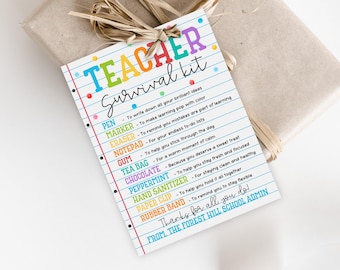 TEACHER
Survival kit
PEN - To write down all your brilliant ideas
MARKER - To make learning pop with color
ERASER - To remind you mistakes are part of learning
NOTEPAD - For your endless to-do lists
GUM - To help you stick through the day
TEA BAG - For a moment of calm
CHOCOLATE - Because you deserve a sweet treat
PEPPERMINT - To help you stay fresh and focused
HAND SANITIZER - For staying clean and healthy
PAPER CLIP - To help you hold it all together
RUBBER BAND - To remind you to stay flexible
Thanks for all you do!
FROM THE FOREST HILL SCHOOL ADMIN